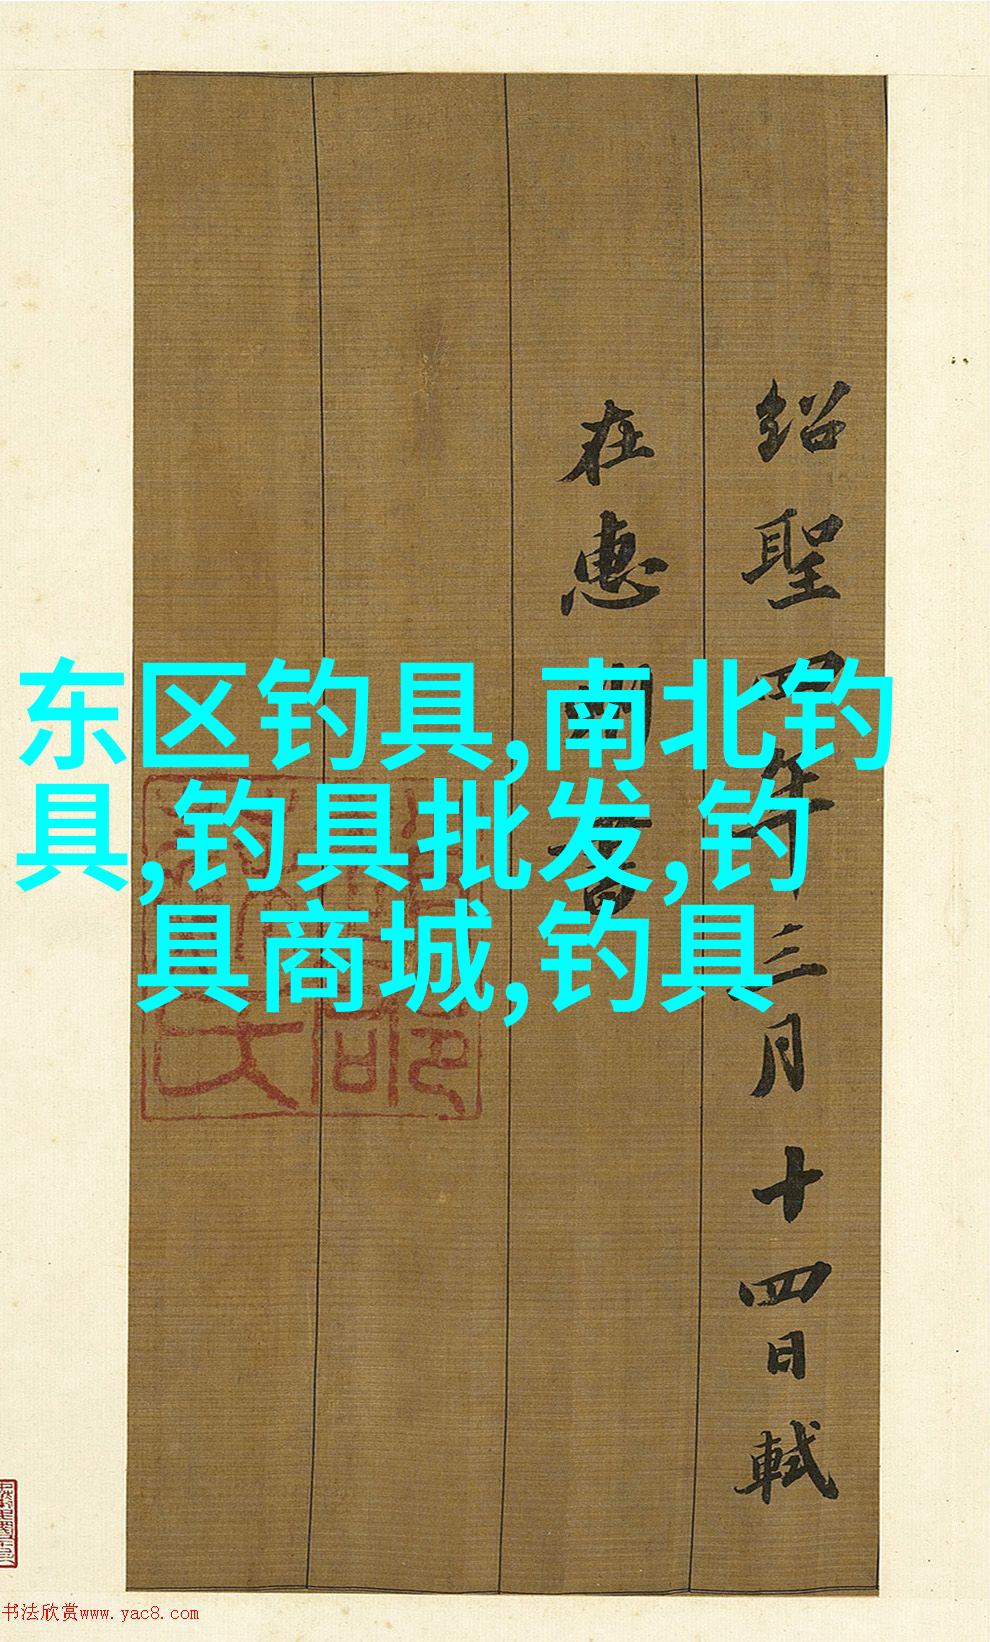 绍聖四年三月十四日軾
在惠州書
东区钓具,南北钓
具,钓具批发,钓
具商城,钓具
书法欣赏www.yac8.com